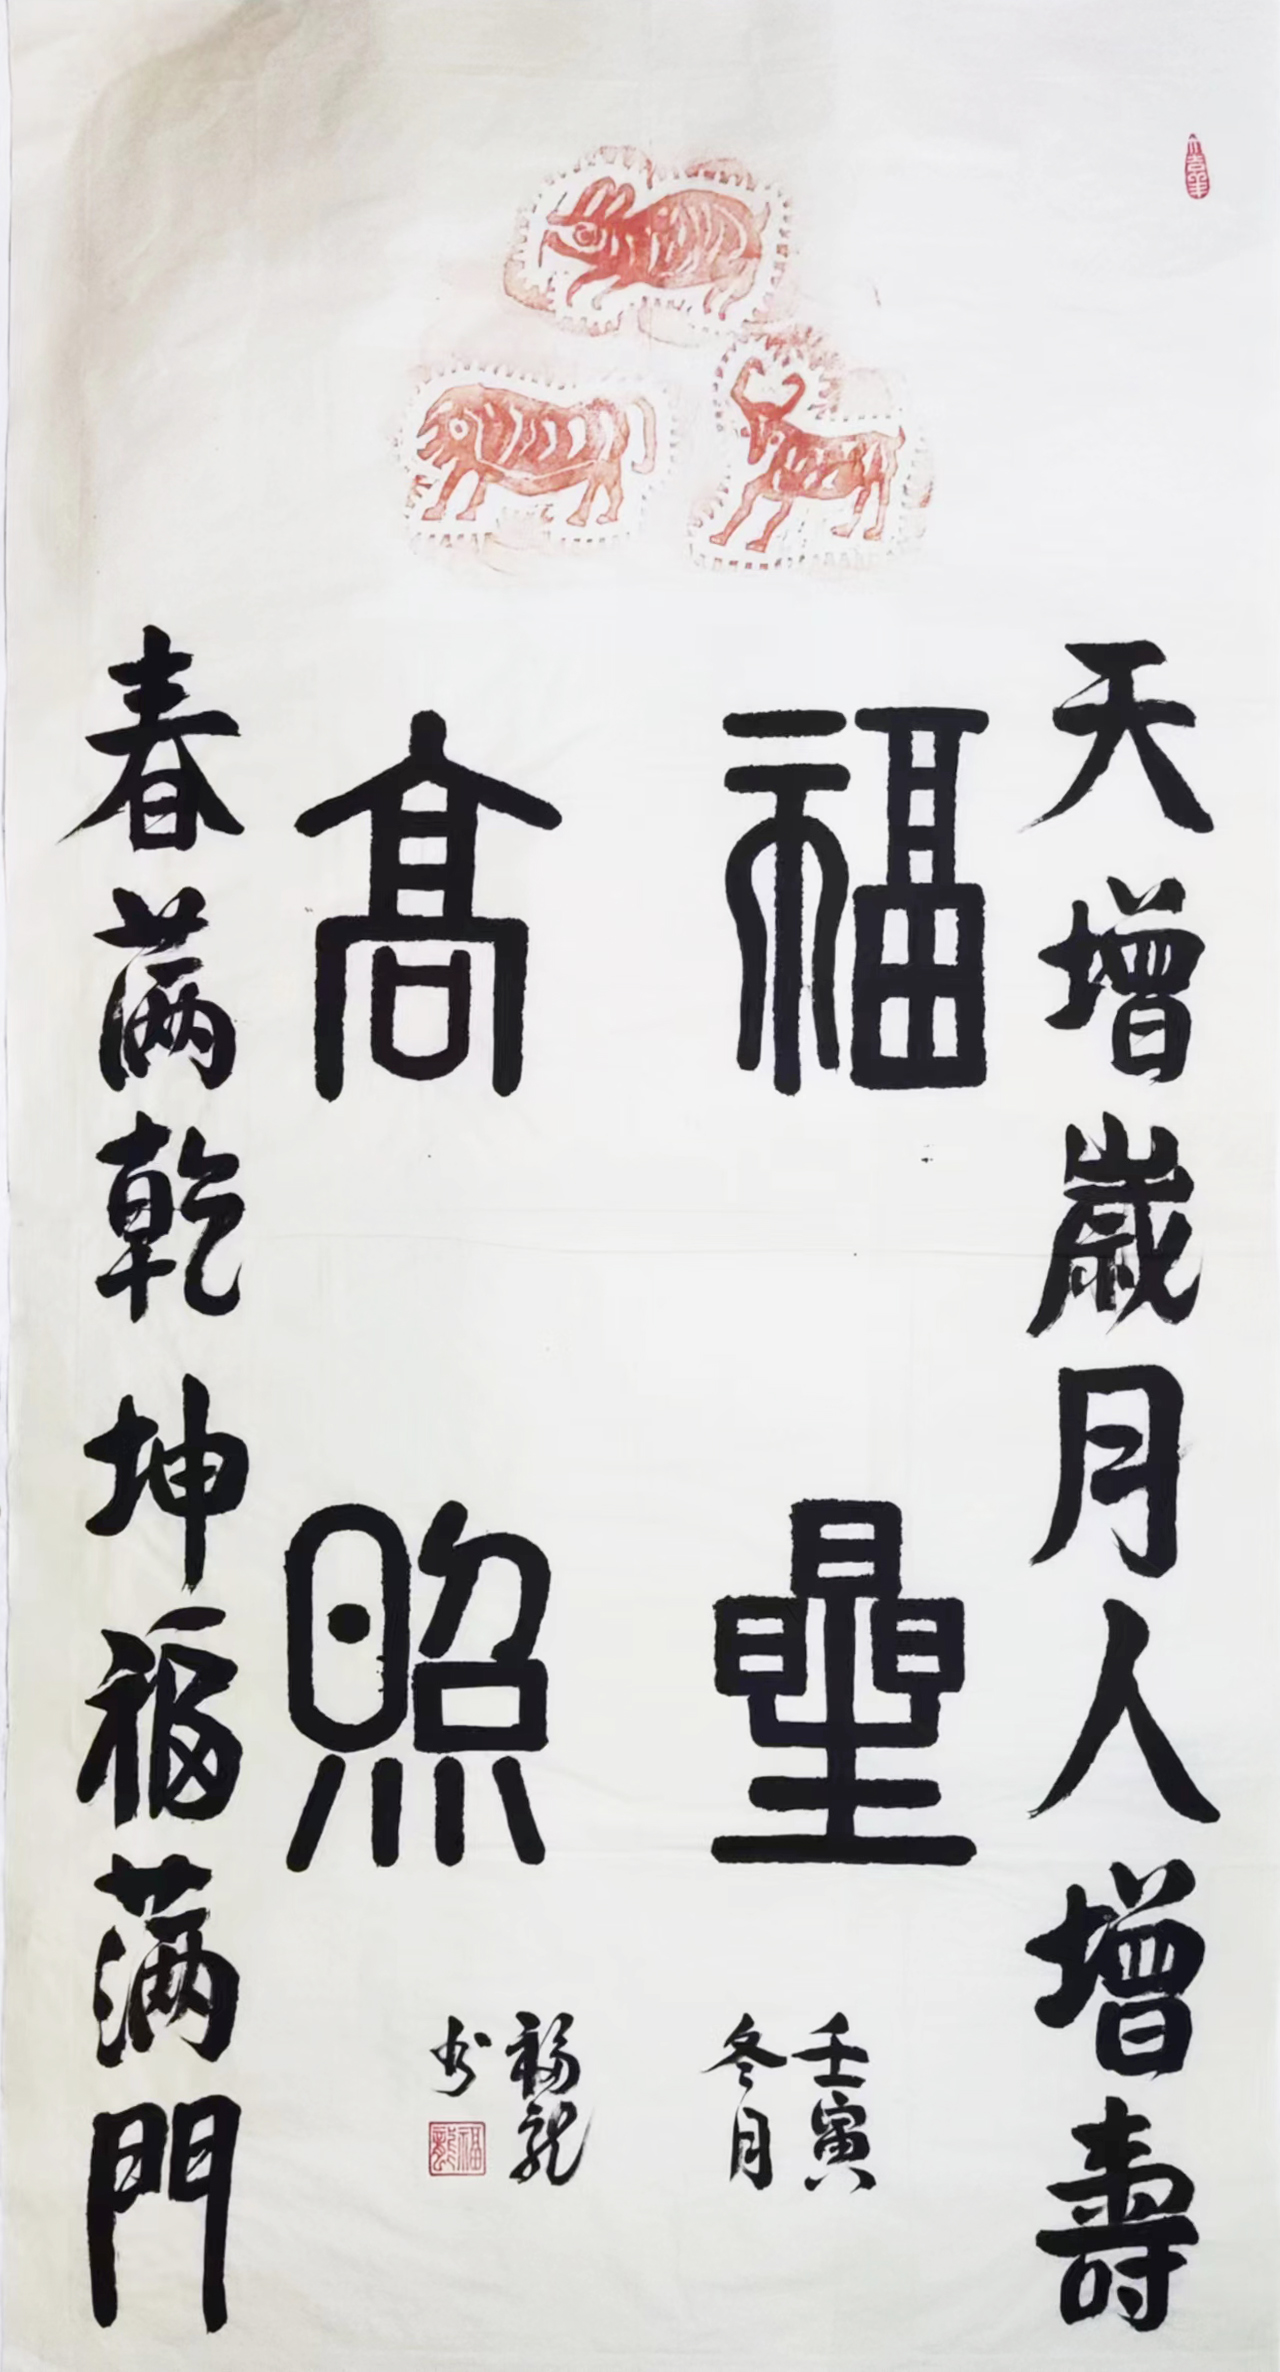 天增歲月人增壽
福星
高照
春滿乾坤福滿門
壬寅
冬月
福龍
書
福龍